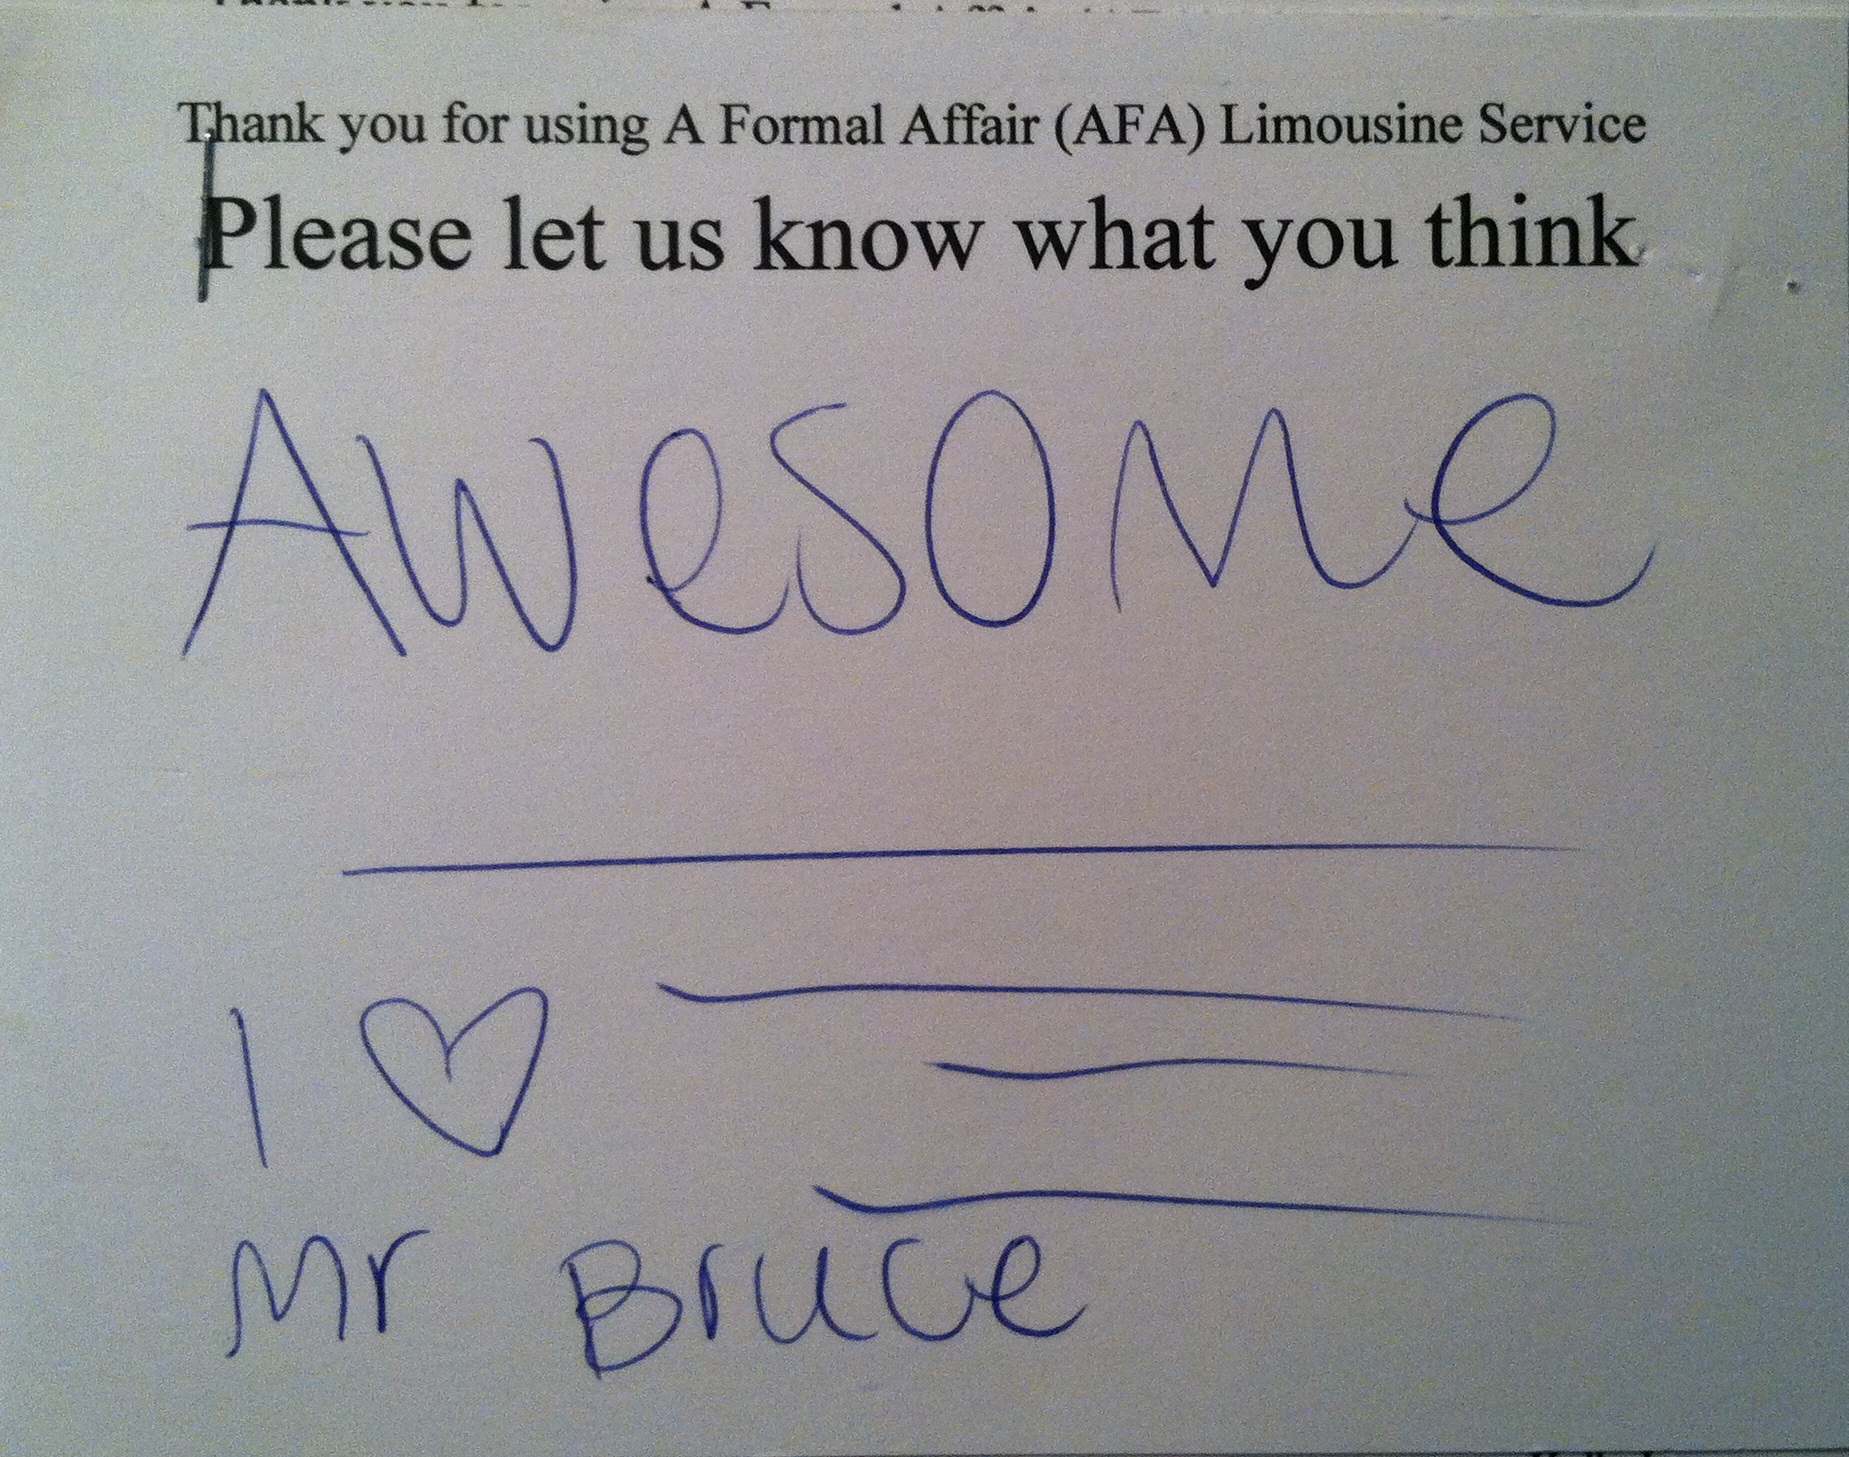 Thank you for using A Formal Affair (AFA) Limousine Service
Please let us know what you think
Awesome
I ♡
Mr Bruce